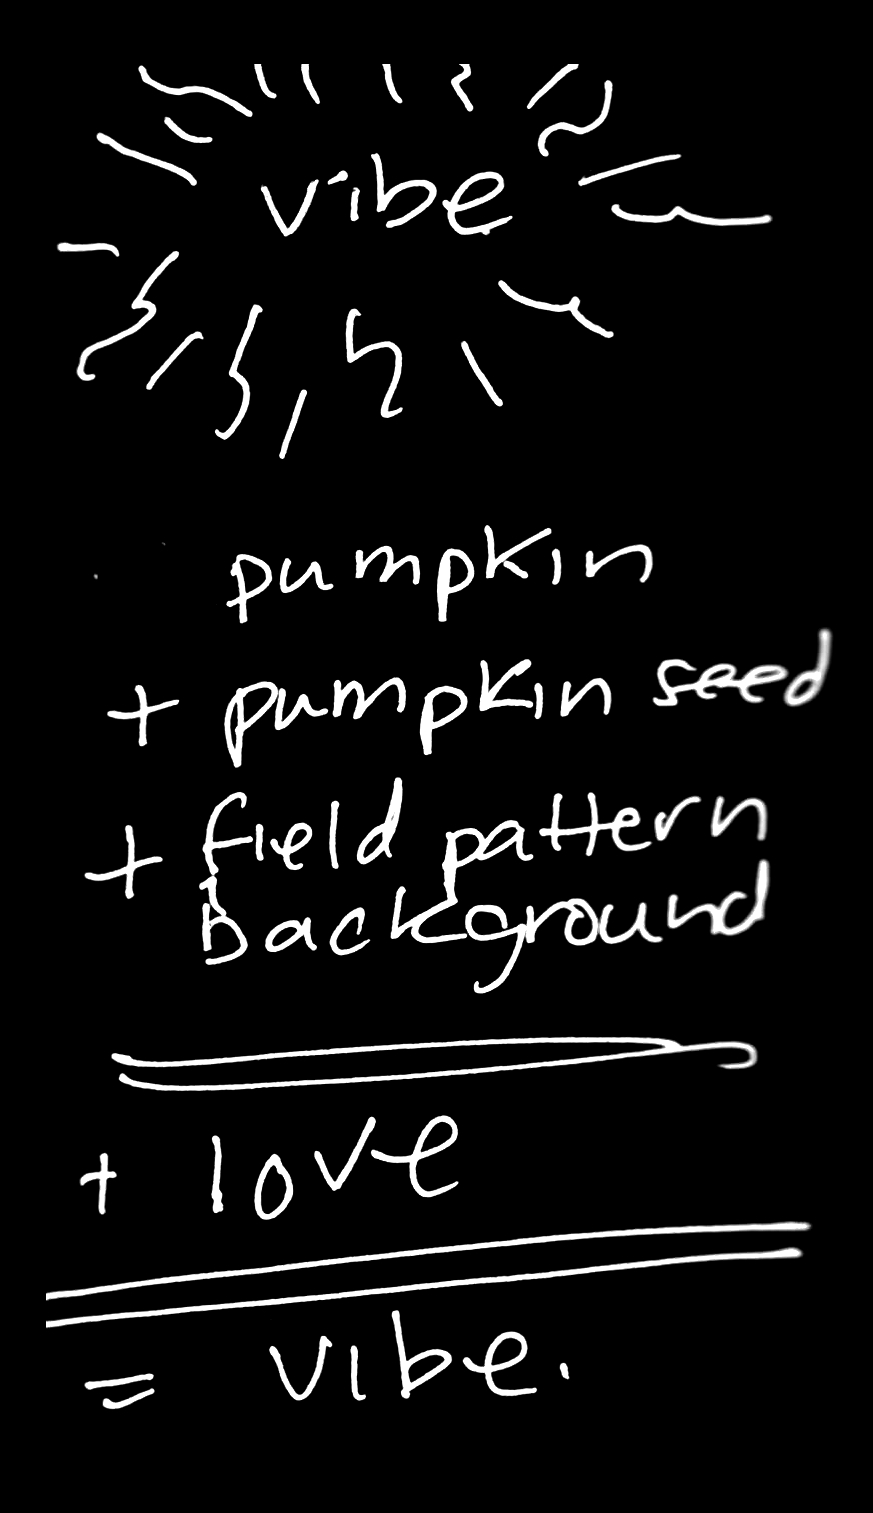 vibe
pumpkin
+ pumpkin seed
+ field pattern
background
+ love
= vibe.